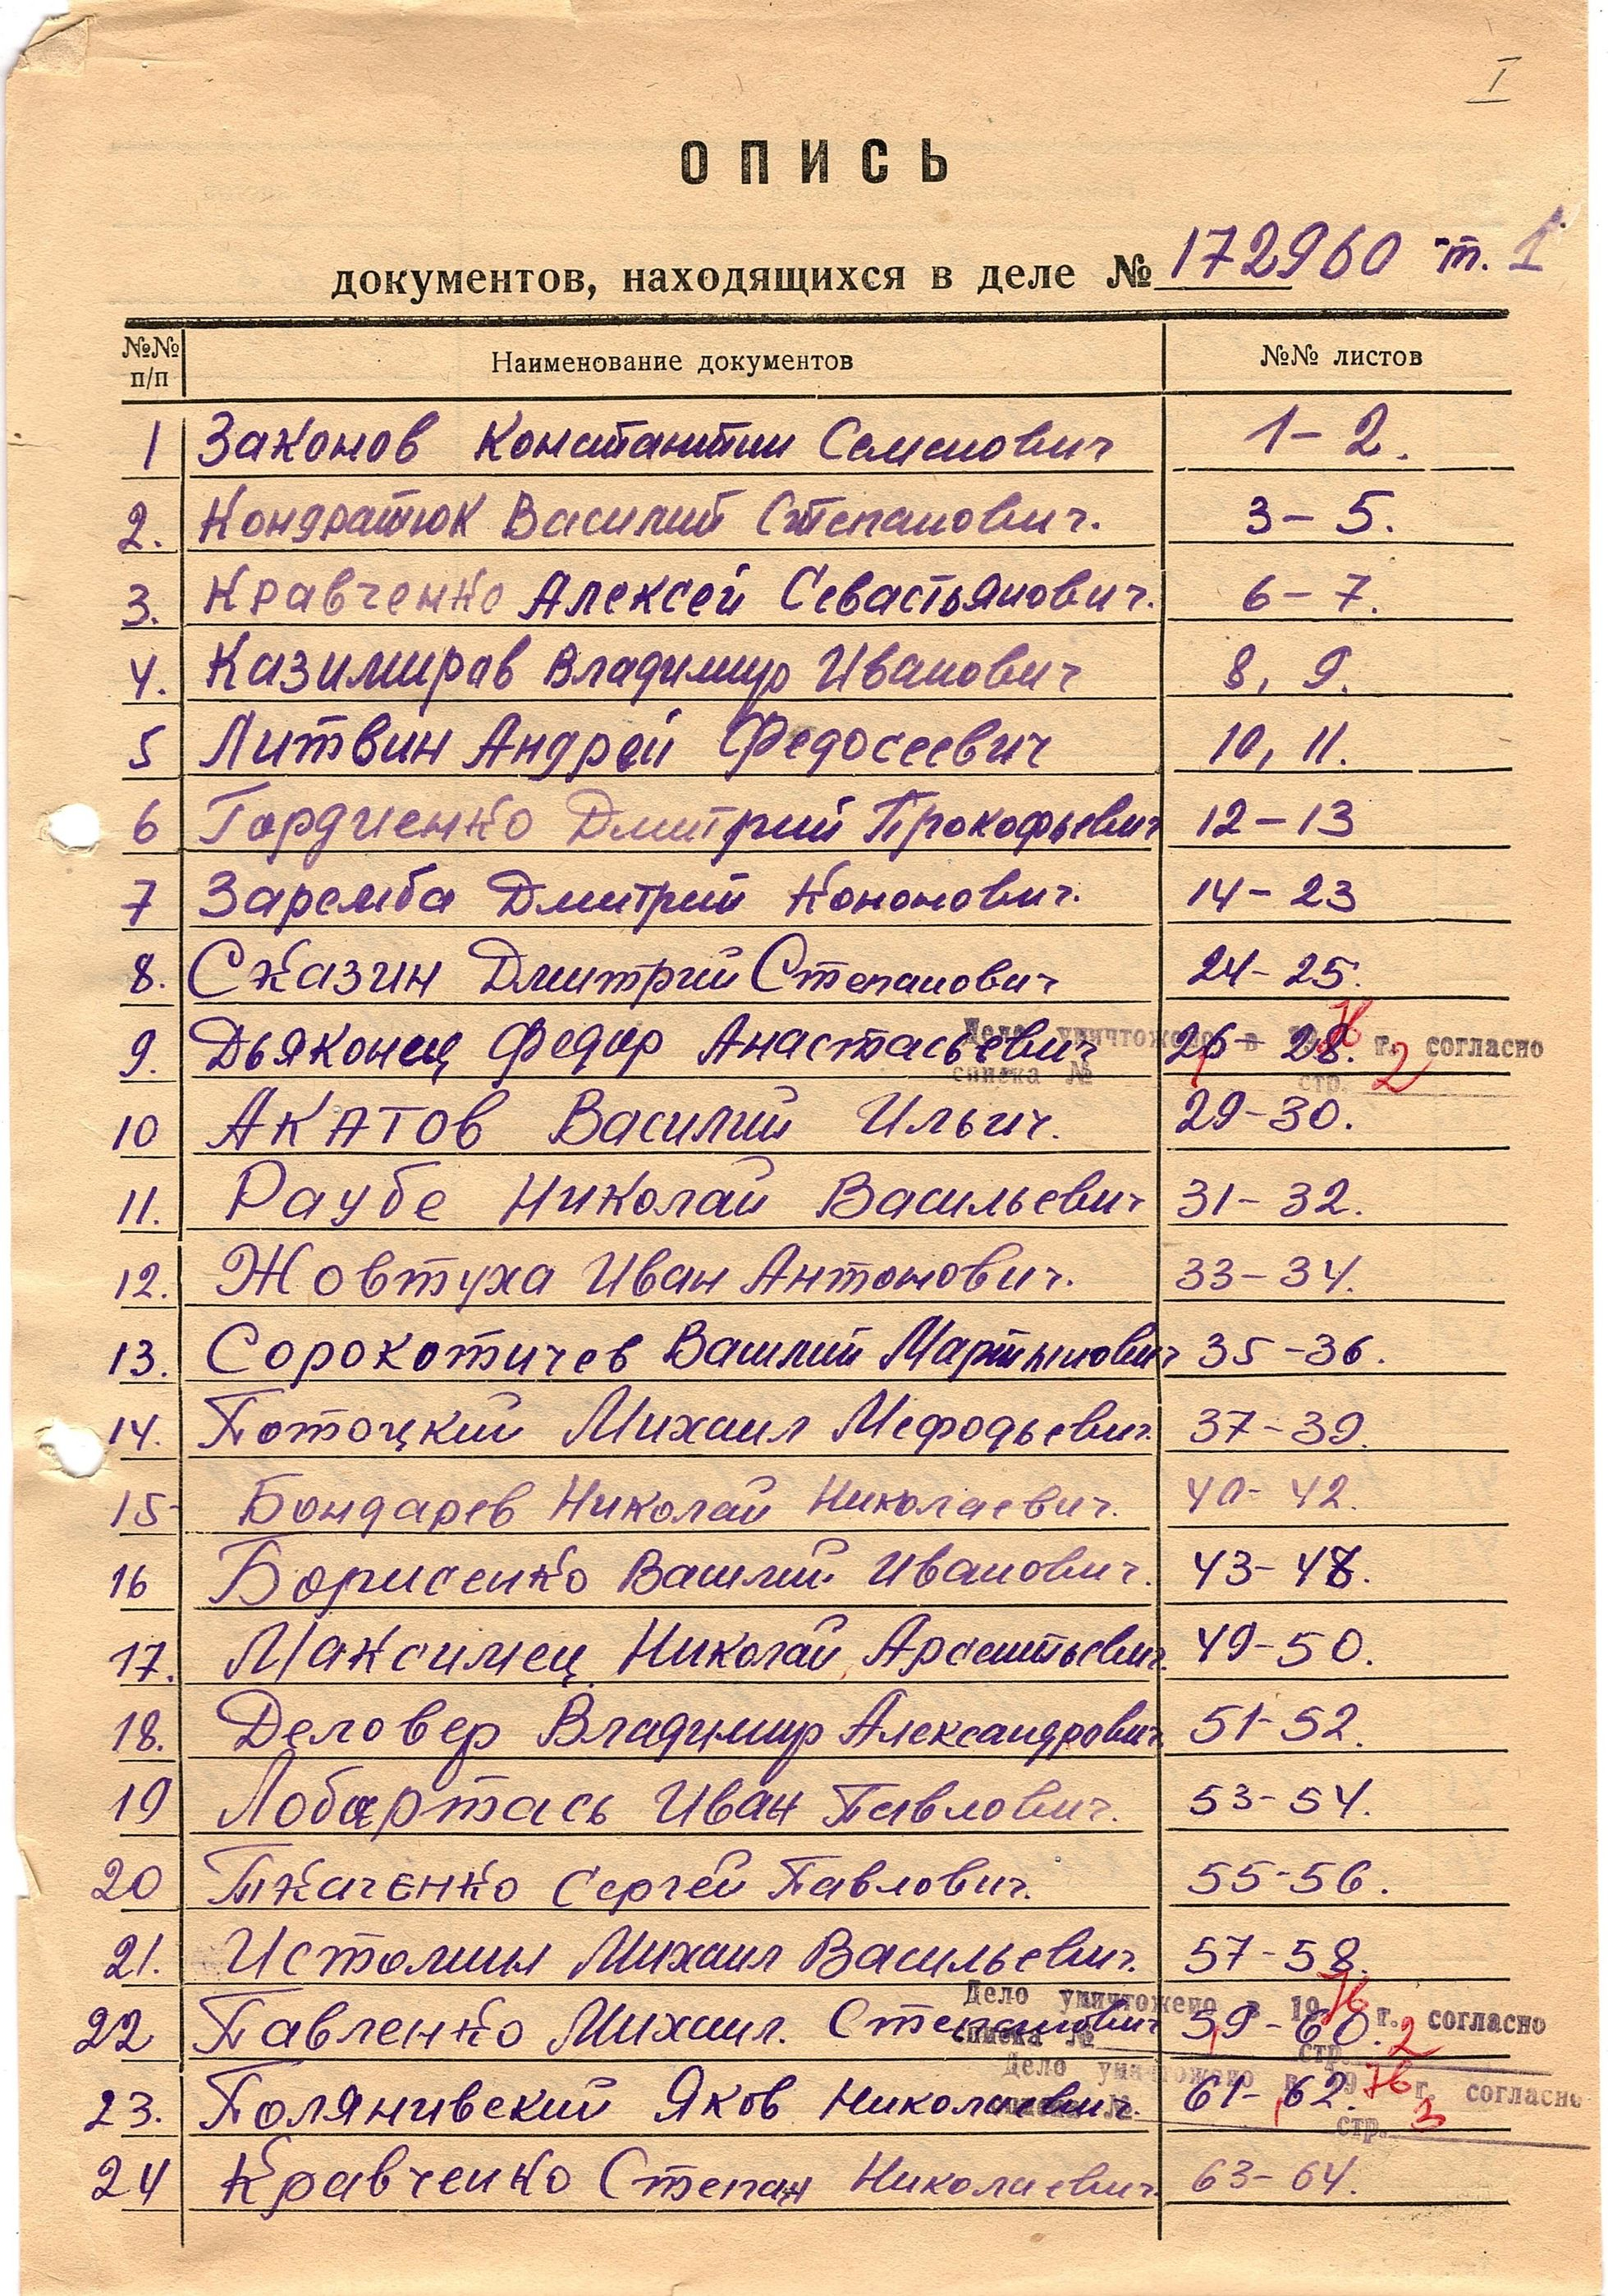 I
ОПИСЬ
документов, находящихся в деле № 172960 т. 1
№№ п/п Наименование документов №№ листов
1 Законов Константин Семенович 1-2.
2. Кондратюк Василий Степанович. 3-5.
3. Кравченко Алексей Севастьянович. 6-7.
4. Казимиров Владимир Иванович 8, 9.
5 Литвин Андрей Федосеевич 10, 11.
6 Гордиенко Дмитрий Прокофьевич 12-13
7 Заремба Дмитрий Кононович. 14-23
8. Сказин Дмитрий Степанович 24-25.
9. Дьяконец Федор Анастасьевич 26-28.
Дело уничтожено в 1976 г. согласно
списка № 1 стр. 2
10 Акатов Василий Ильич. 29-30.
11. Раубе Николай Васильевич 31-32.
12. Жовтуха Иван Антонович. 33-34.
13. Сорокотичев Василий Мартынович 35-36.
14. Потоцкий Михаил Мефодьевич. 37-39.
15 Бондарев Николай Николаевич. 40-42.
16 Борисенко Василий Иванович. 43-48.
17. Максимец Николай Арсентьевич. 49-50.
18. Деловер Владимир Александрович. 51-52.
19 Лобартась Иван Павлович. 53-54.
20 Ткаченко Сергей Павлович. 55-56.
21. Истомин Михаил Васильевич. 57-58.
22 Павленко Михаил. Степанович 59-60.
Дело уничтожено в 1976 г. согласно
списка № 1 стр. 2
23. Полянивский Яков Николаевич. 61-62.
Дело уничтожено в 1976 г. согласно
списка № 1 стр. 3
24 Кравченко Степан Николаевич. 63-64.